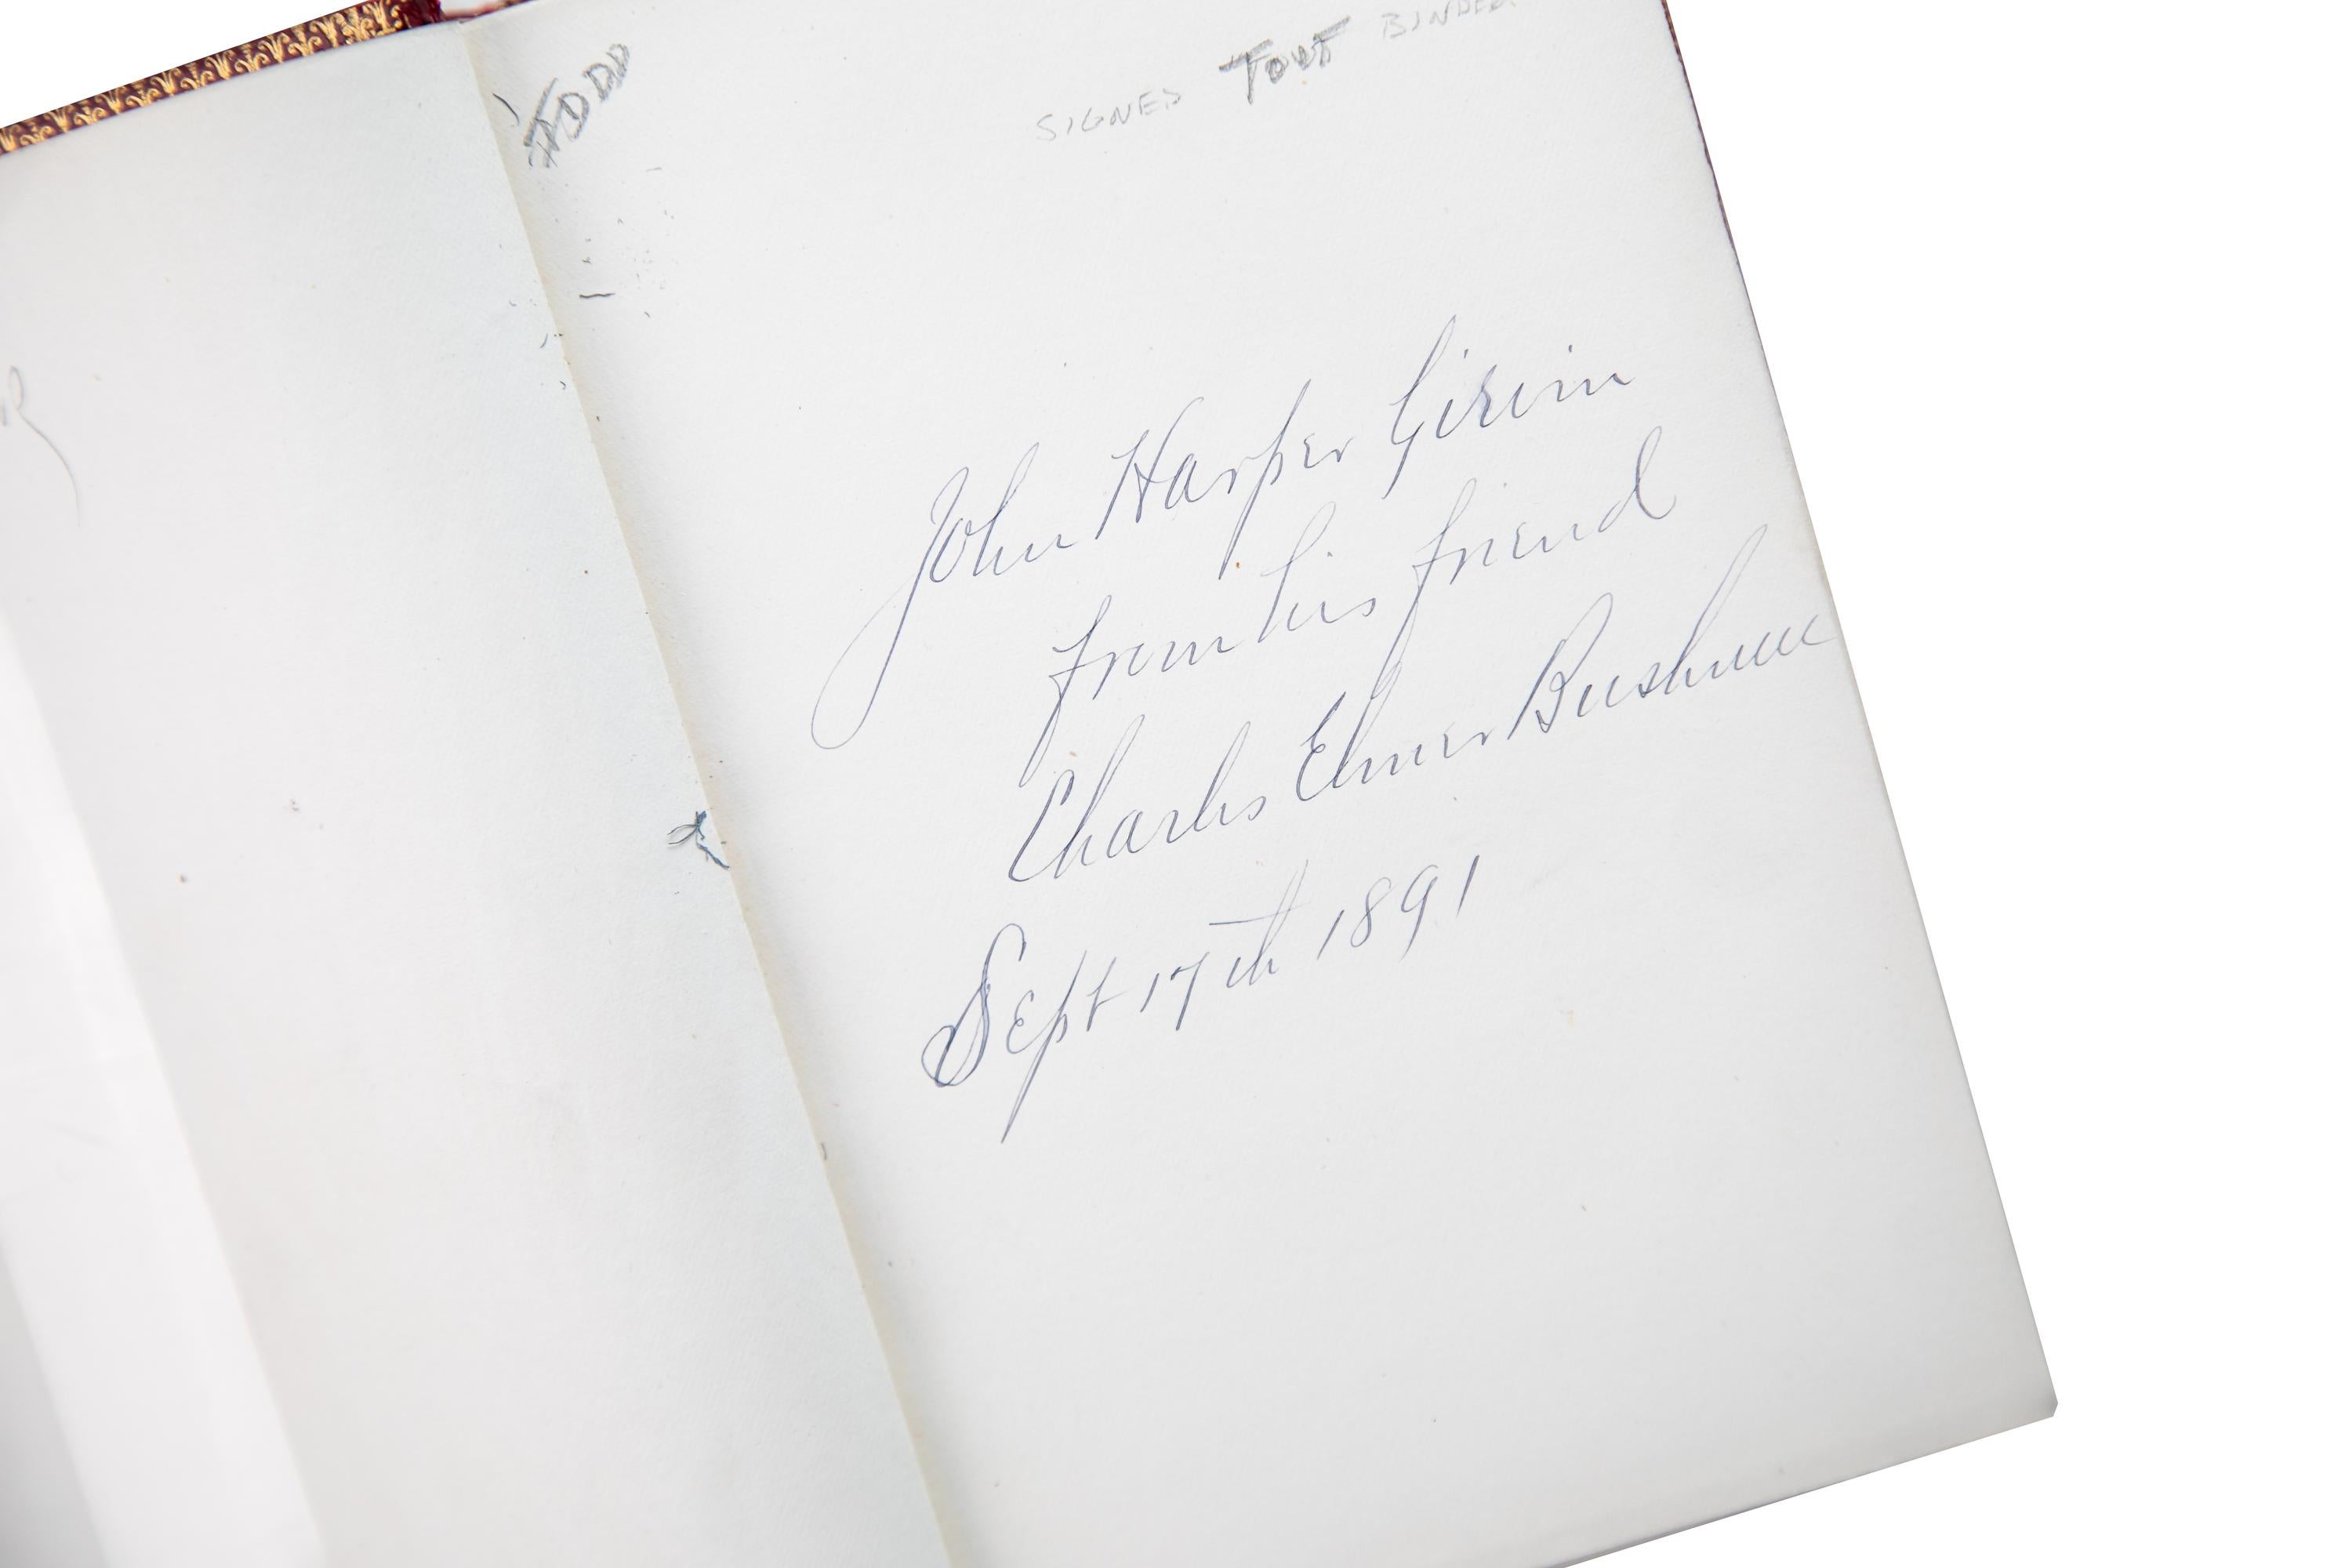 TODD
SIGNED TOUT BINDER
John Harper Girvin
from his friend
Charles Elmer Bushnell
Sept 17th 1891